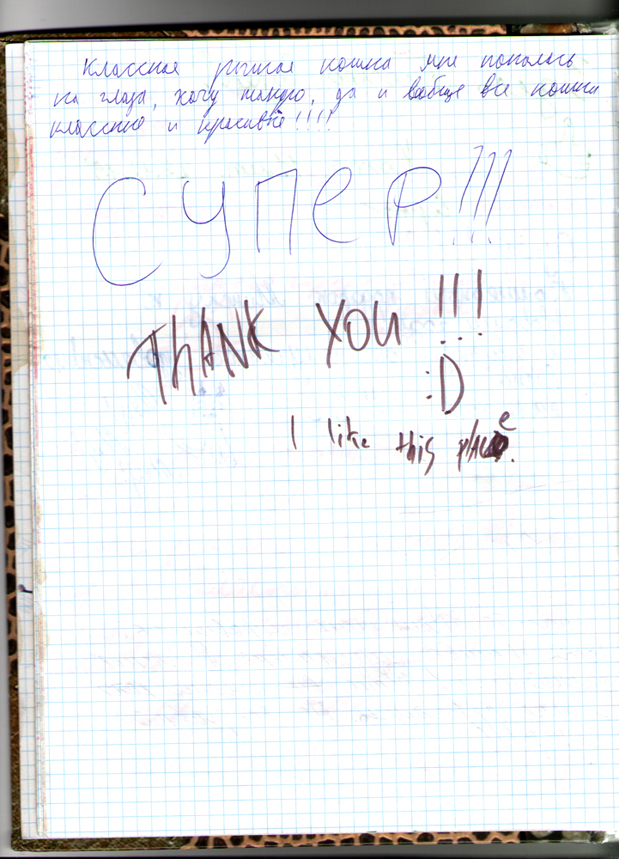 Классная рыжая кошка мне попалась
на глаза, хочу такую, да и вобще все кошки
классные и красивые!!!!
СУПЕР!!!
THANK YOU!!!
:D
I like this place.